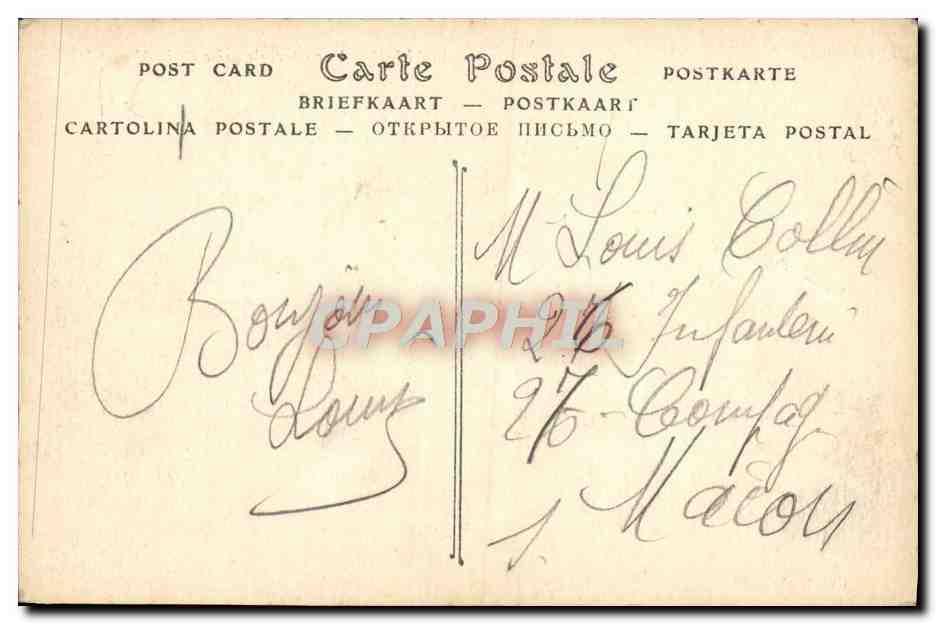 POST CARD Carte Postale POSTKARTE
BRIEFKAART — POSTKAART
CARTOLINA POSTALE — ОТКРЫТОЕ ПИСЬМО — TARJETA POSTAL
Bonjour
Louis
M Louis Collin
Infanterie
27 - Compag
Macon
CPAPHIL